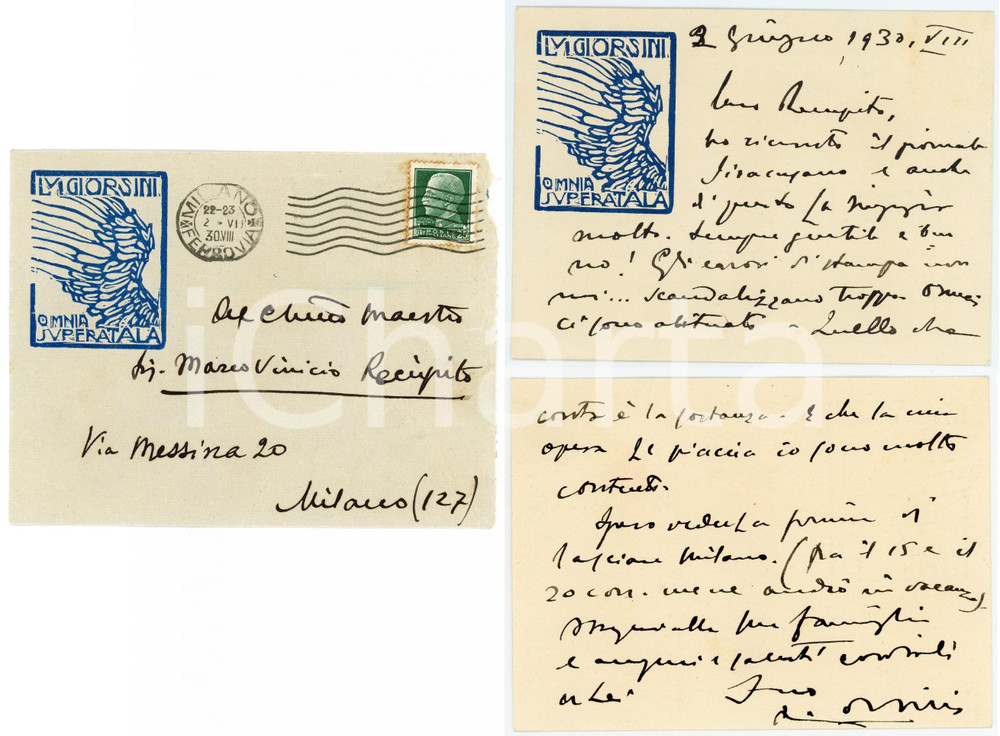 LVIGI ORSINI
OMNIA
SVPERAT ALA
MILANO
22-23
2 - VI
30.VIII
FERROVIA
Al Chiño Maestro
Sig. Marco Vinicio Recupito
Via Messina 20
Milano (127)
iCharta
LVIGI ORSINI
OMNIA
SVPERAT ALA
2 Giugno, 1930, VIII
Caro Recupito,
ho ricevuto il giornale
siracusano e anche
di questo La ringrazio
molto. Sempre gentile e buo
no! Gli errori di stampa non
mi... scandalizzano troppo. Ormai
ci sono abituato. Quello che
conta è la sostanza. E che la mia
opera Le piaccia io sono molto
contento.
Spero vederLa prima di
lasciare Milano. (fra il 15 e il
20 corr. me ne andrò in vacanza)
alla sua famiglia
e auguri e saluti cordiali
a Lei
Suo
L. Orsini